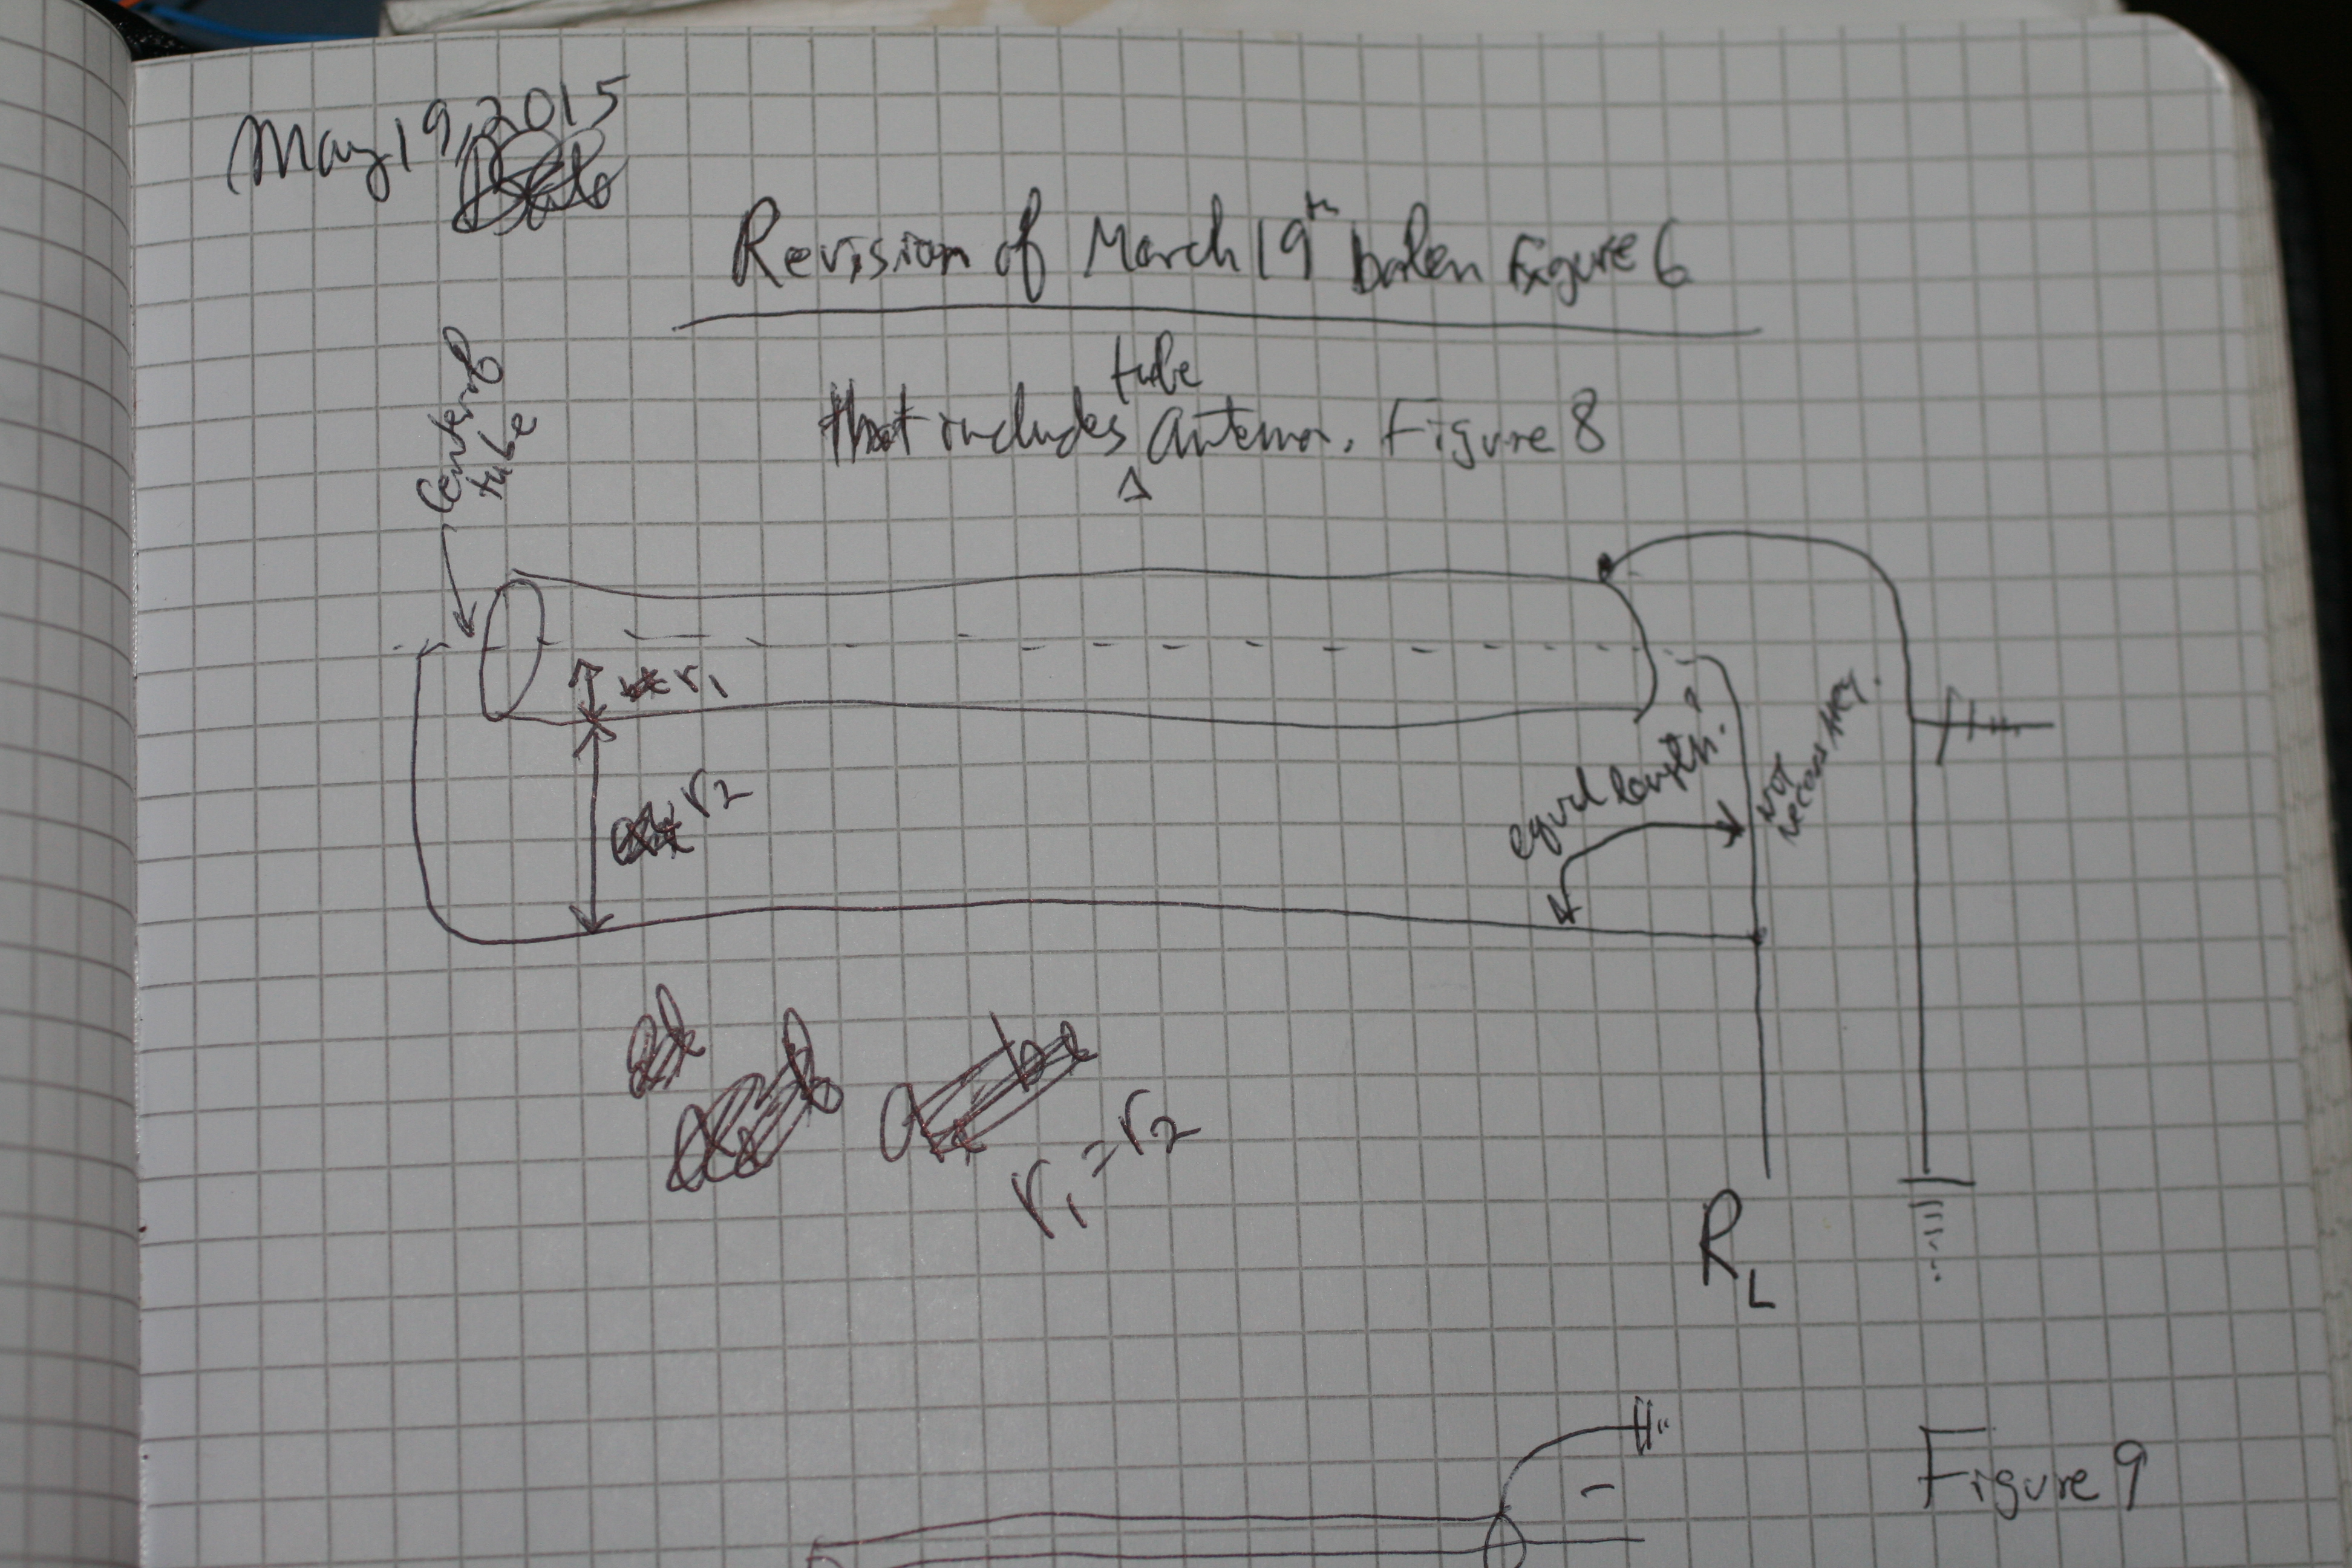 May 19, 2015
Revision of March 19th balen Figure 6
that includes tube antenna. Figure 8
Center of
tube
r1
r2
equal length?
Not
necessarily.
r1 = r2
RL
Figure 9